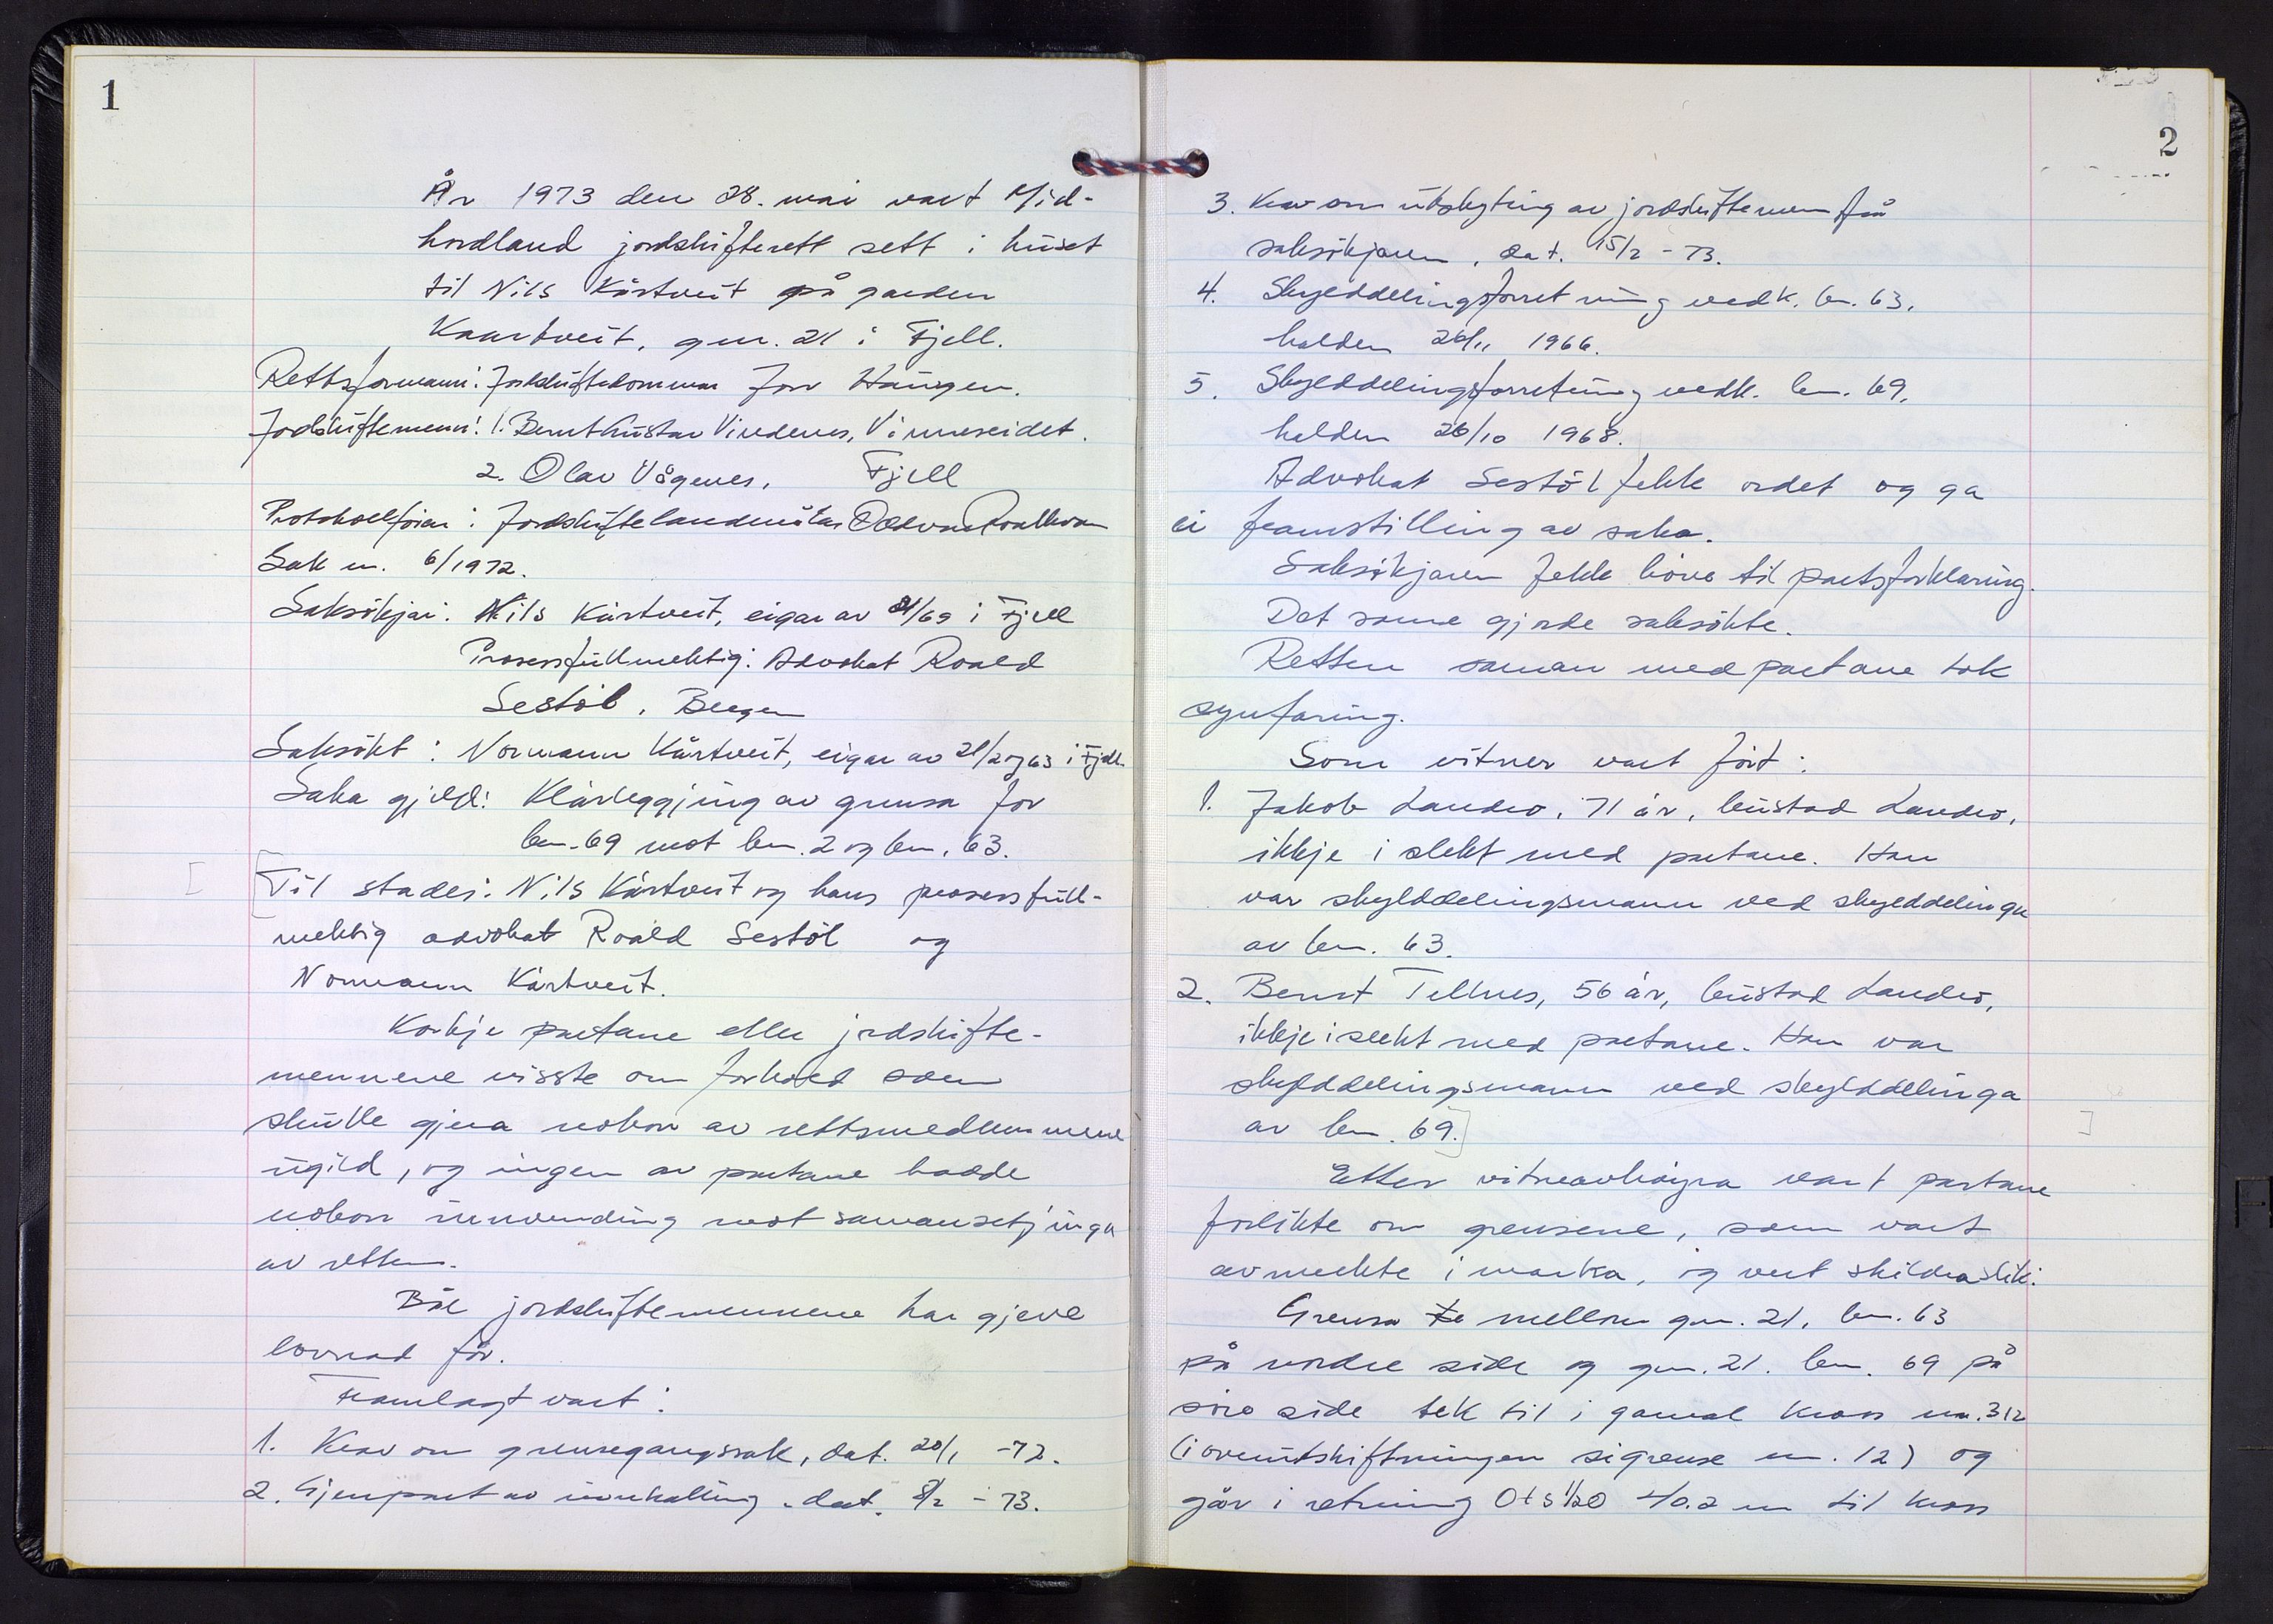 1
År 1973 den 28. mai vart Mid-
hordland jordskifterett sett i huset
til Nils Kårtveit på garden
Kaartveit, gnr. 21 i Fjell.
Rettsformann: Jordskiftedommar Jon Haugen.
Jordskiftemenn: 1. Bernt Gustav Vindenes, Vinneseidet.
2. Olav Vågenes, Fjell
Protokollførar: Jordskiftelandmålar Oddvar
Sak nr. 6/1972.
Saksøkjar: Nils Kårtveit, eigar av 21/69 i Fjell
Prosessfullmektig: Advokat Roald
Sestøl, Bergen
Saksøkt: Normann Kårtveit, eigar av 21/2 og 63 i Fjell.
Saka gjeld: Klårleggjing av grensa for
bnr. 69 mot bnr. 2 og bnr. 63.
Til stades: Nils Kårtveit og hans prosessfull-
mektig advokat Roald Sestøl og
Normann Kårtveit.
Korkje partane eller jordskifte-
mennene visste om forhold som
skulle gjera nokon av rettsmedlemmene
ugild, og ingen av partane hadde
nokon innvending mot samansetjinga
av retten.
Båe jordskiftemennene har gjeve
lovnad før.
Framlagt vart:
1. Krav om grensegangssak, dat. 20/1 -72.
2. Gjenpart av innkalling, dat. 8/2 - 73.
2
3. Krav om utskyting av jordskiftemenn frå
saksøkjaren, dat. 15/2 - 73.
4. Skylddelingsforretning vedk. bnr. 63,
halden 26/11 1966.
5. Skylddelingsforretning vedk. bnr. 69,
halden 26/10 1968.
Advokat Sestøl fekk ordet og ga
ei framstilling av saka.
Saksøkjaren fekk høve til partsforklaring.
Det same gjorde saksøkte.
Retten saman med partane tok
synfaring.
Som vitner vart ført:
1. Jakob Landro, 71 år, bustad Landro,
ikkje i slekt med partane. Han
var skylddelingsmann ved skylddelinga
av bnr. 63.
2. Bernt Tellnes, 56 år, bustad Landro,
ikkje i slekt med partane. Han var
skylddelingsmann ved skylddelinga
av bnr. 69.
Etter vitneavhøyra vart partane
forlikte om grensene, som vart
avmerkte i marka, og vert skildra slik:
Grensa mellom gnr. 21, bnr. 63
på nordre side og gnr. 21. bnr. 69 på
søre side tek til i gamal kross nr. 312
(i overutskiftningen sigrense nr. 12) og
går i retning 40.2 m til kross